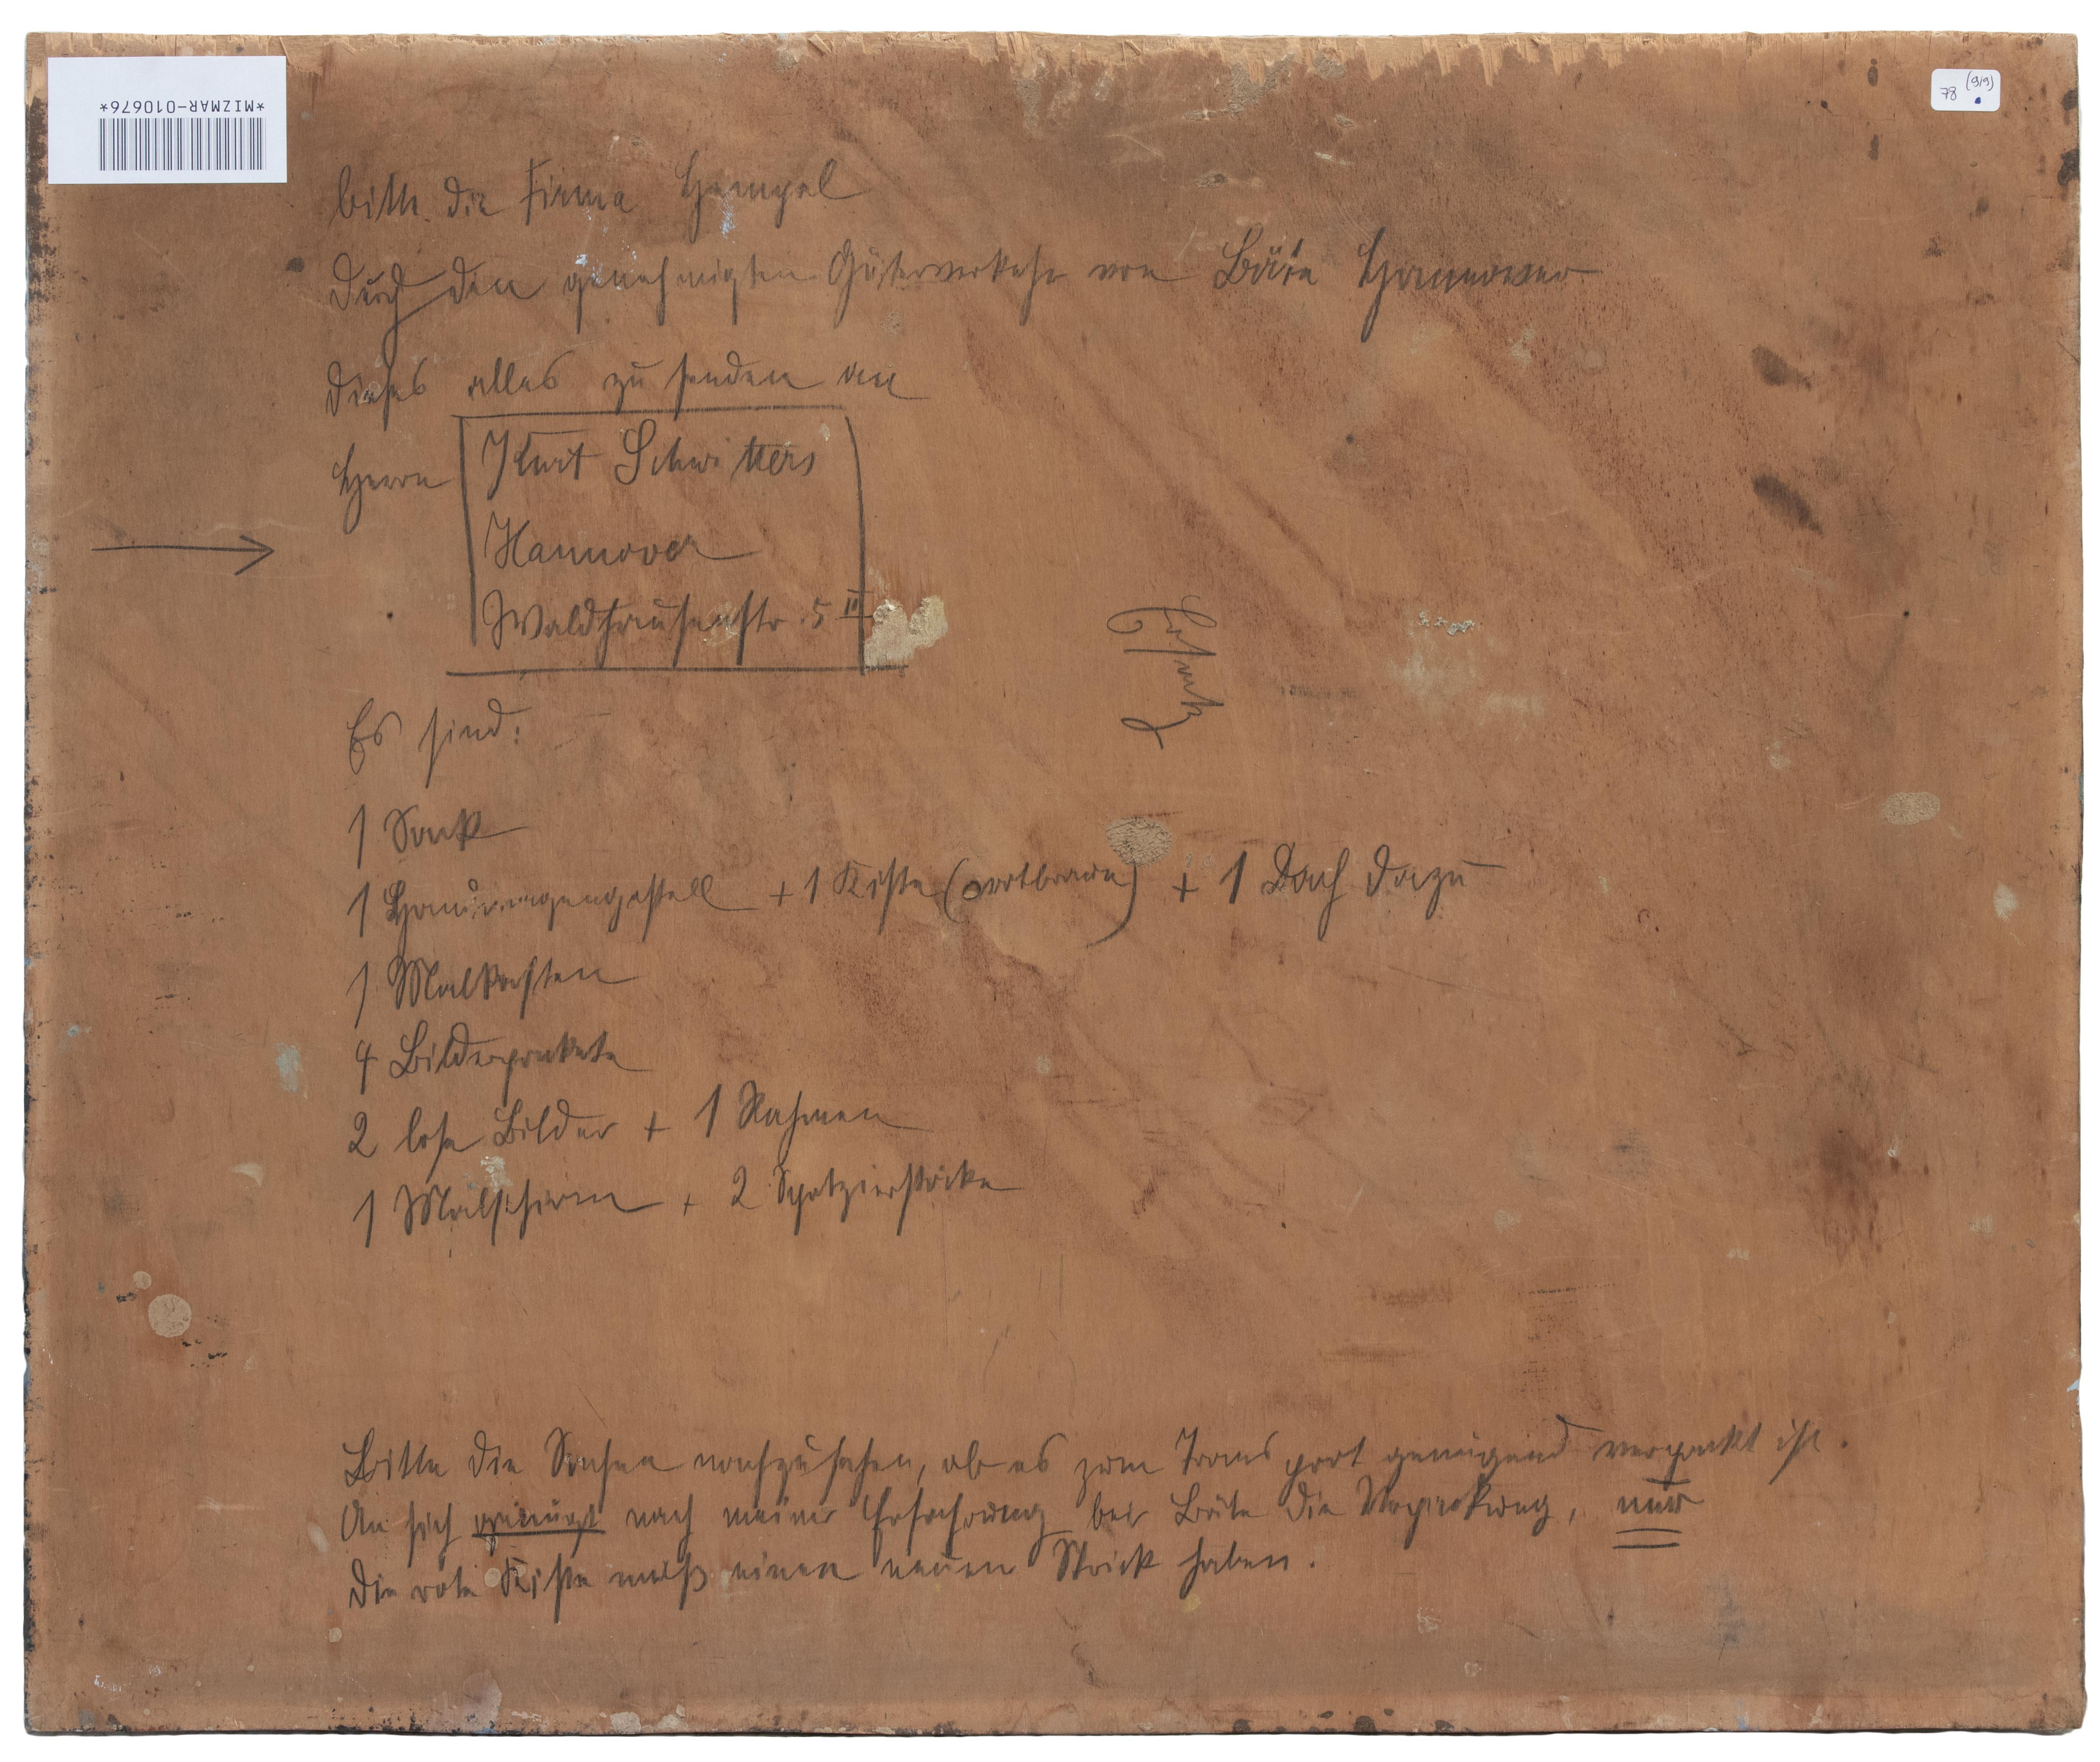 *MIZMAR-010676*
78 (9/9)
bitte die Firma Hempel
durch den genehmigten Güterverkehr von Bäte Hannover
dieses alles zu senden an
Herrn Kurt Schwitters
Hannover
Waldhausenstr. 5 II
Es sind:
1 Sack
1 Handwagengestell + 1 Kiste (rotbraun) + 1 Dach dazu
1 Malkasten
4 Bilderpakete
2 lose Bilder + 1 Rahmen
1 Malschirm + 2 Spazierstöcke
Bitte die Sachen nachzusehen, ob es zum Transport genügend verpackt ist.
An sich genügt nach meiner Erfahrung bei Bäte die Verpackung, nur
die rote Kiste muß einen neuen Strick haben.